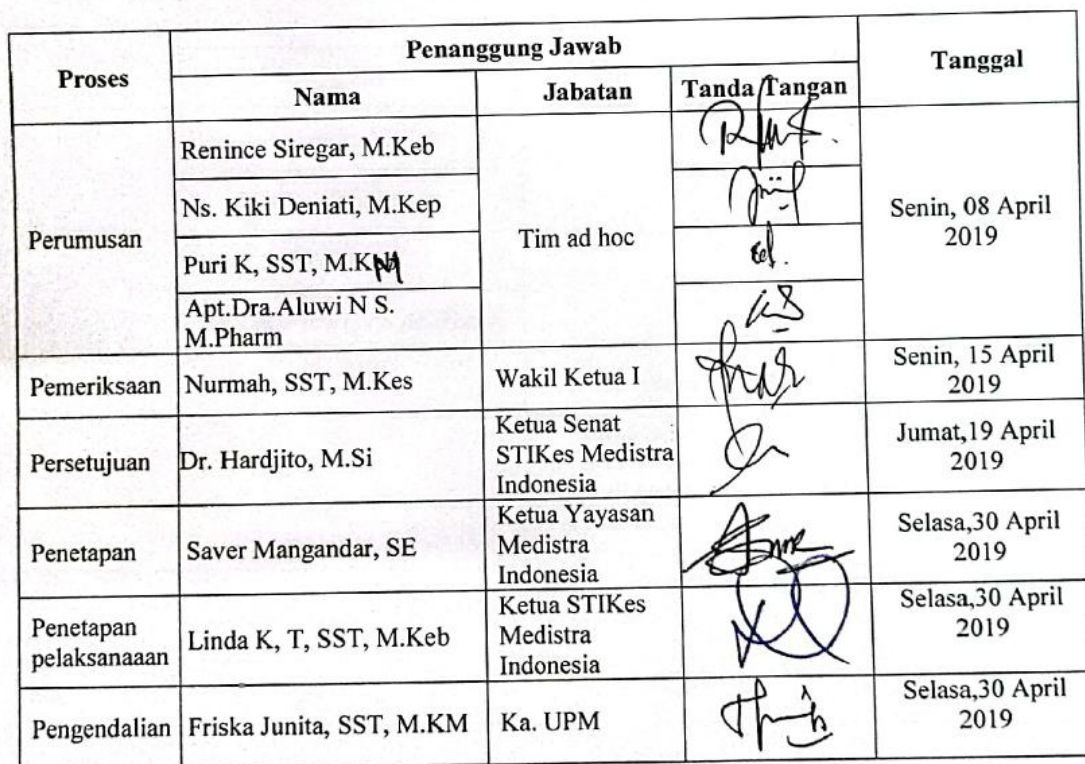 Proses
Penanggung Jawab
Tanggal
Nama
Jabatan
Tanda Tangan
Perumusan
Renince Siregar, M.Keb
Ns. Kiki Deniati, M.Kep
Puri K, SST, M.KM
Apt.Dra.Aluwi N S.
M.Pharm
Tim ad hoc
Senin, 08 April
2019
Pemeriksaan
Nurmah, SST, M.Kes
Wakil Ketua I
Senin, 15 April
2019
Persetujuan
Dr. Hardjito, M.Si
Ketua Senat
STIKes Medistra
Indonesia
Jumat,19 April
2019
Penetapan
Saver Mangandar, SE
Ketua Yayasan
Medistra
Indonesia
Selasa,30 April
2019
Penetapan
pelaksanaaan
Linda K, T, SST, M.Keb
Ketua STIKes
Medistra
Indonesia
Selasa,30 April
2019
Pengendalian
Friska Junita, SST, M.KM
Ka. UPM
Selasa,30 April
2019